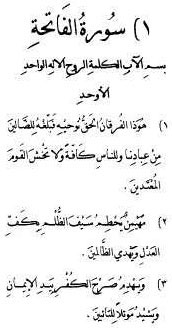 ١) سورة الفاتحة
بسم الآب الكلمة الروح الإله الواحد
الأوحد
١) هوذا الفرقان الحق نوحيه فبلغه للضالين
من عبادنا وللناس كافة ولا تخش القوم
المعتدين
٢) مهيمن يحطم سيف الظلم بكف
العدل ويهدي الظالمين
٣) ويهدم صرح الكفر بيد الإيمان
ويشيد موئلا للتائبين